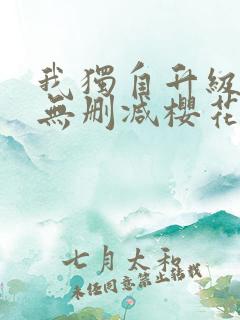 我獨自升級
無刪減櫻花
七月太和
未经同意禁止转载